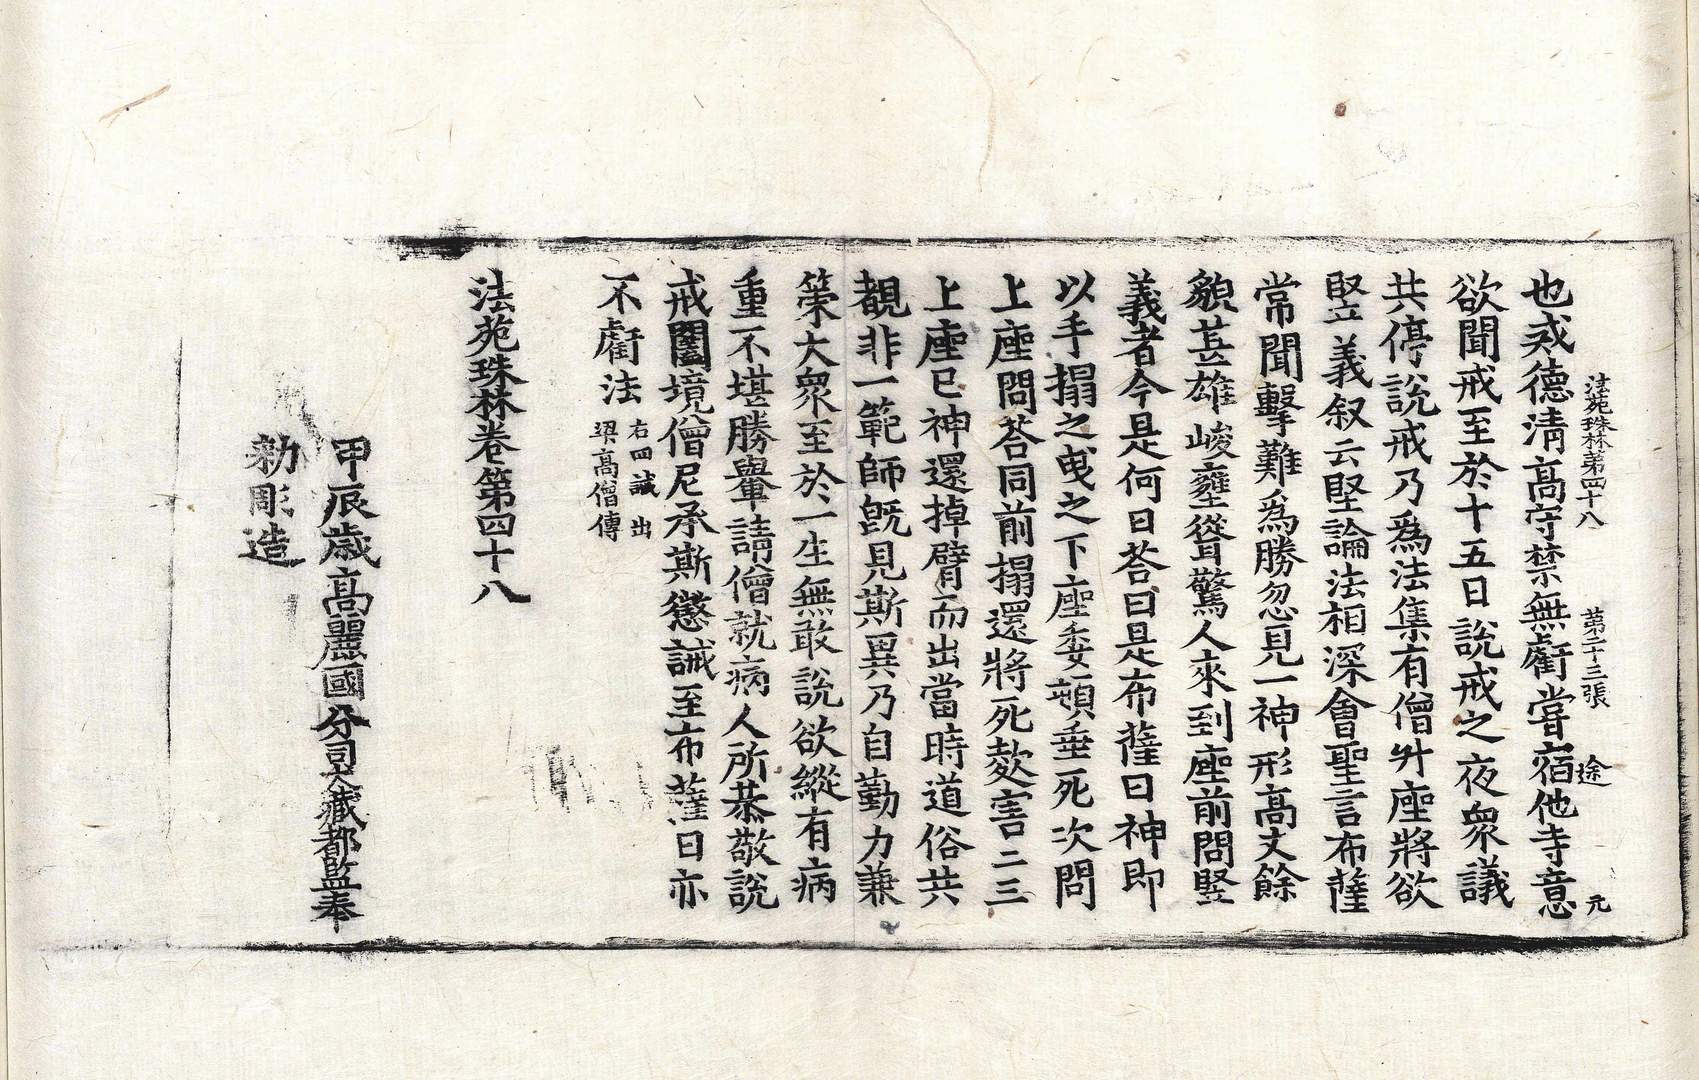 法苑珠林第四十八 第二十三張 途 元
也戒德清高守禁無虧嘗宿他寺意
欲聞戒至於十五日說戒之夜衆議
共停說戒乃爲法集有僧昇座將欲
竪義叙云竪論法相深會聖言布薩
常聞擊難爲勝忽見一神形高丈餘
貌甚雄峻壅聳驚人來到座前問竪
義者今是何日荅曰是布薩日神即
以手搨之曳之下座委頓垂死次問
上座問荅同前搨還將死欻害二三
上座已神還掉臂而出當時道俗共
覩非一範師旣見斯異乃自勤力兼
策大衆至於一生無敢說欲縱有病
重不堪勝轝請僧就病人所恭敬說
戒闔境僧尼承斯懲誡至布薩日亦
不虧法
右四誡出
梁高僧傳
法苑珠林卷第四十八
甲辰歲高麗國分司大藏都監奉
勑彫造